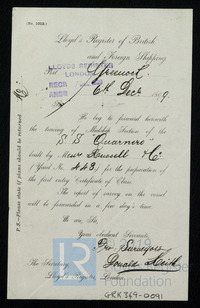 Lloyd's Register of British
and Foreign Shipping
Port Greenock
6th Decr 1899
LLOYD'S REGISTER
LONDON
Sir,
We beg to forward herewith
the tracing of Midship Section of the
S.S. Quarnero
built by Messrs Russell & Co
(Yard No. 443) for the preparation of
the first entry Certificate of Class.
The report of survey on the vessel
will be forwarded in a few day's time.
We are, Sir,
Your obedient Servants,
The Secretary,
Lloyd's Register, London.
P.S.—Please state if plans should be returned.
GRK369-0091